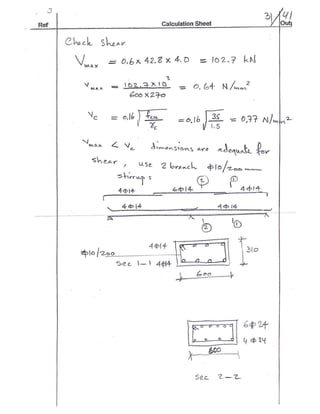 3
31/41
Ref
Calculation Sheet
Out
Check Shear
Vmax = 0.6 x 42.8 x 4.0 = 102.7 kN
vmax = 102.7x10² / 600x270 = 0.64 N/mm²
Vc = 0.16 √(fcu/γc) = 0.16 √(35/1.5) = 0.77 N/mm²
Vmax < Vc dimensions are adequate for
shear, use 2 branch ϕ10/200 mm
stirrups
2 1
4ϕ14 6ϕ14 4ϕ14
4ϕ14 4ϕ14
2 1
ϕ10/200
4ϕ14
310
Sec 1-1 4ϕ14
600
6ϕ24
4ϕ14
600
Sec 2-2